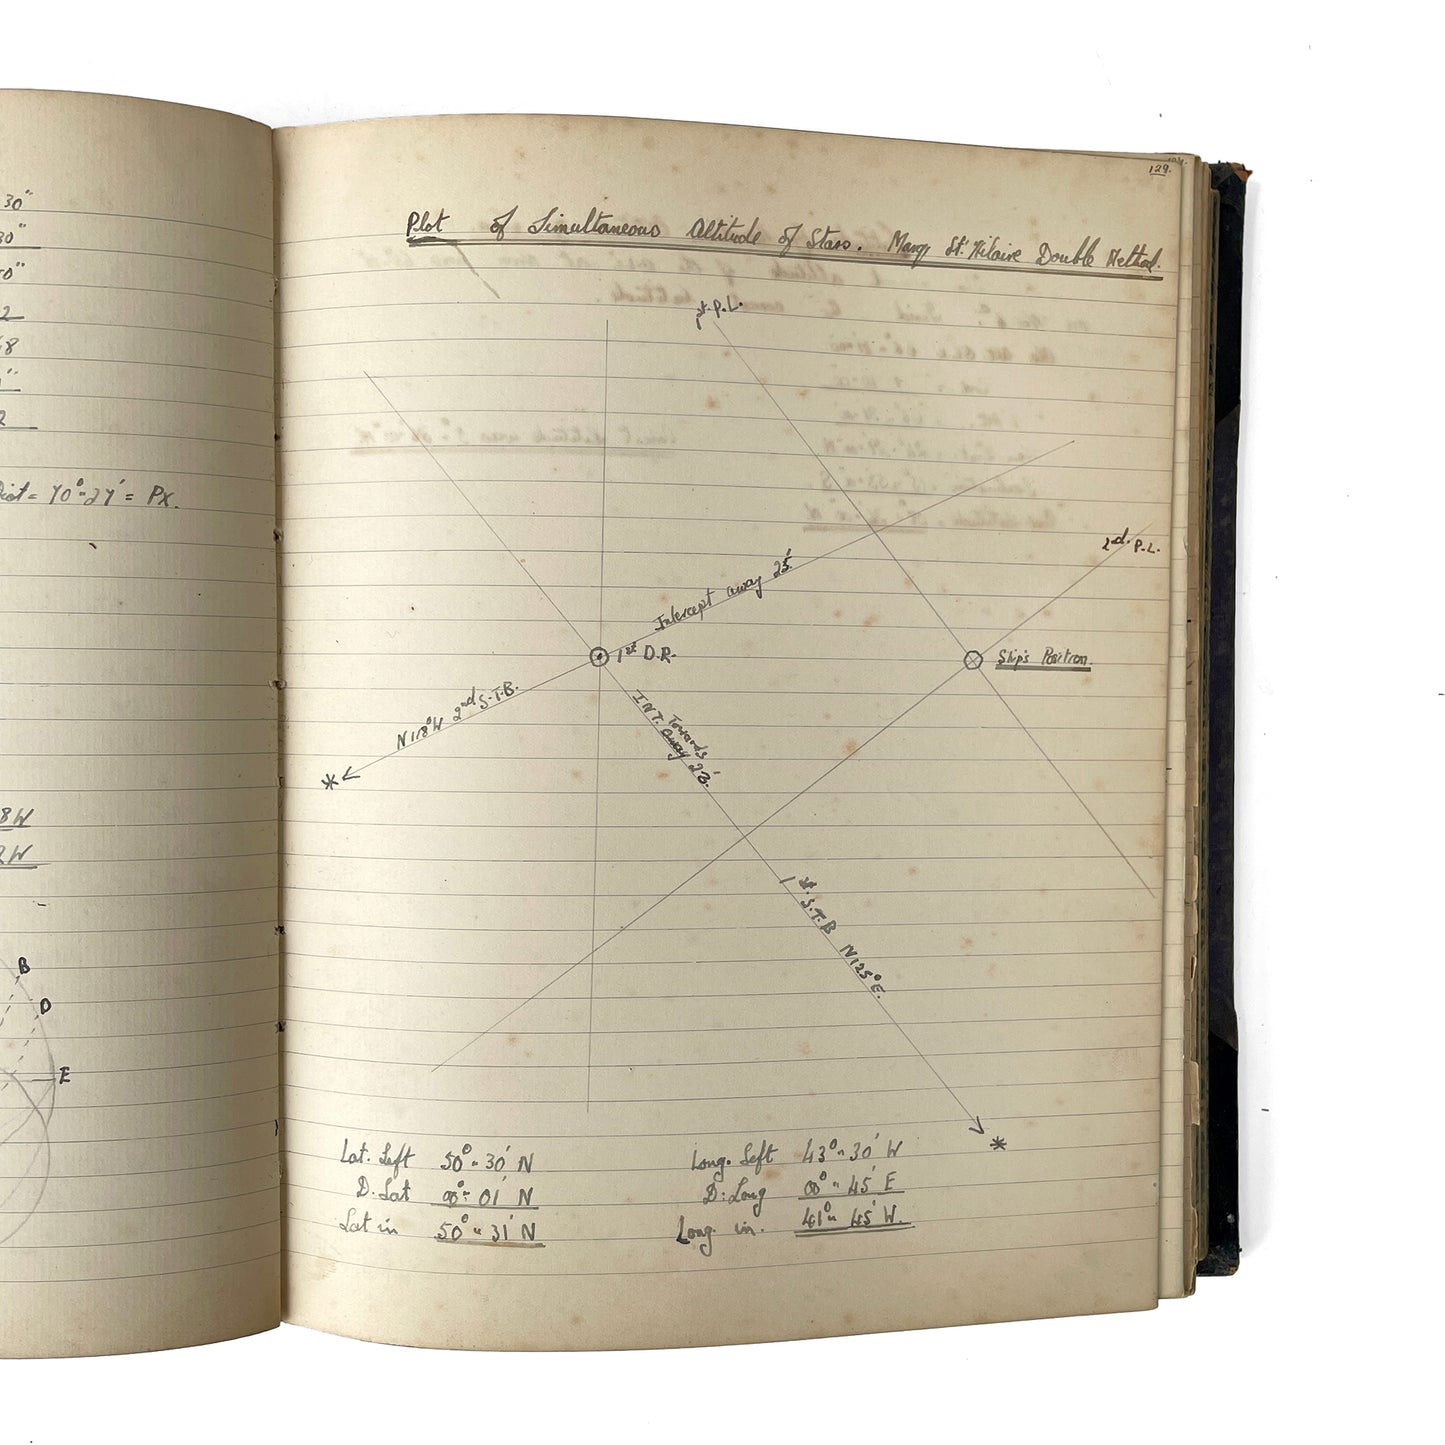 30"
30"
50"
2
48
1"
2
Dist = 70°-27' = PX.
8W
2W
B
D
E
129.
Plot of Simultaneous Altitude of Stars. Marq St. Hilaire Double Method.
1st. P.L.
2nd. P.L.
Intercept away 25'.
1st D.R.
Ship's Position.
N118°W 2nd S.T.B.
INT. Towards
away 23'.
1st. S.T.B N125°E.
Lat. Left 50°- 30' N Long. Left 43°- 30' W
D. Lat 00°- 01' N D. Long 00°- 45' E
Lat in 50°- 31' N Long. in. 41°- 45' W.